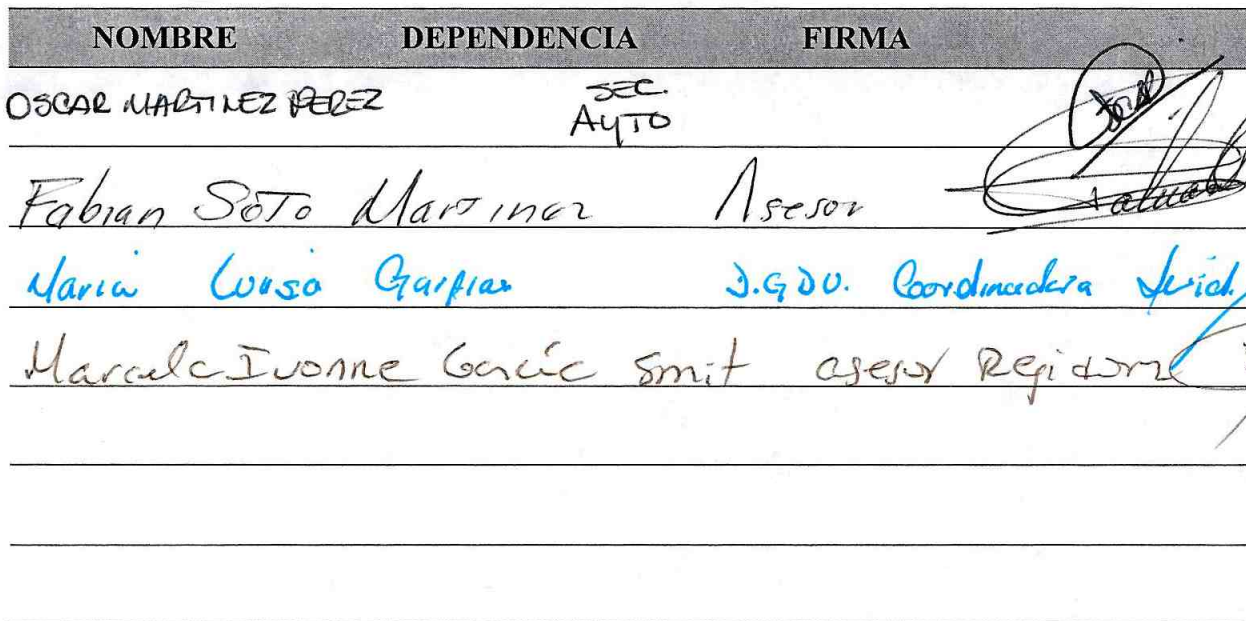 NOMBRE DEPENDENCIA FIRMA
OSCAR MARTINEZ PEREZ SEC. AYTO
Fabian Soto Martinez Asesor
Maria Luisa D.G.D.U. Coordinadora
Marcela Ivonne García Smit asesor Regidora